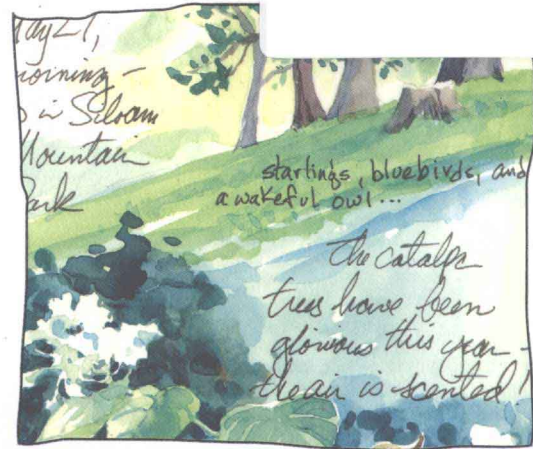 May 27,
morning -
in Siloam
Mountain
Park
starlings, bluebirds, and
a wakeful owl...
the catalpa
trees have been
glorious this year -
the air is scented!